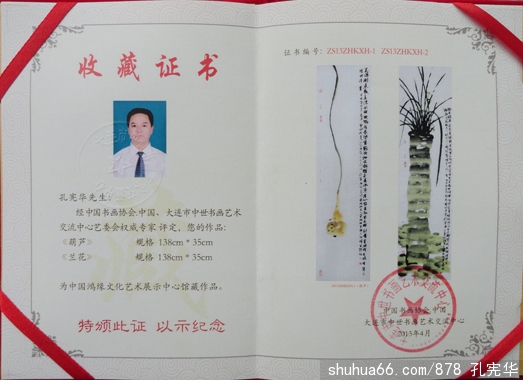 收藏证书
孔宪华先生：
经中国书画协会.中国、大连市中世书画艺术
交流中心艺委会权威专家评定，您的作品：
《葫芦》 规格 138cm * 35cm
《兰花》 规格 138cm * 35cm
为中国鸿缘文化艺术展示中心馆藏作品。
特颁此证 以示纪念
证书编号：ZS13ZHKXH-1 ZS13ZHKXH-2
中国书画协会.中国
大连市中世书画艺术交流中心
2013年4月
shuhua66.com/878 孔宪华